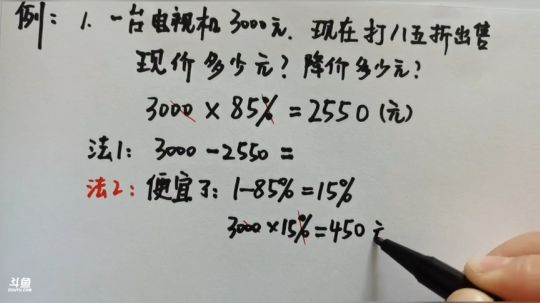 例：1. 一台电视机3000元．现在打八五折出售
现价多少元？降价多少元？
3000 × 85% = 2550（元）
法1：3000 - 2550 =
法2：便宜了：1-85% = 15%
3000 × 15% = 450元
斗鱼
DOUYU.COM